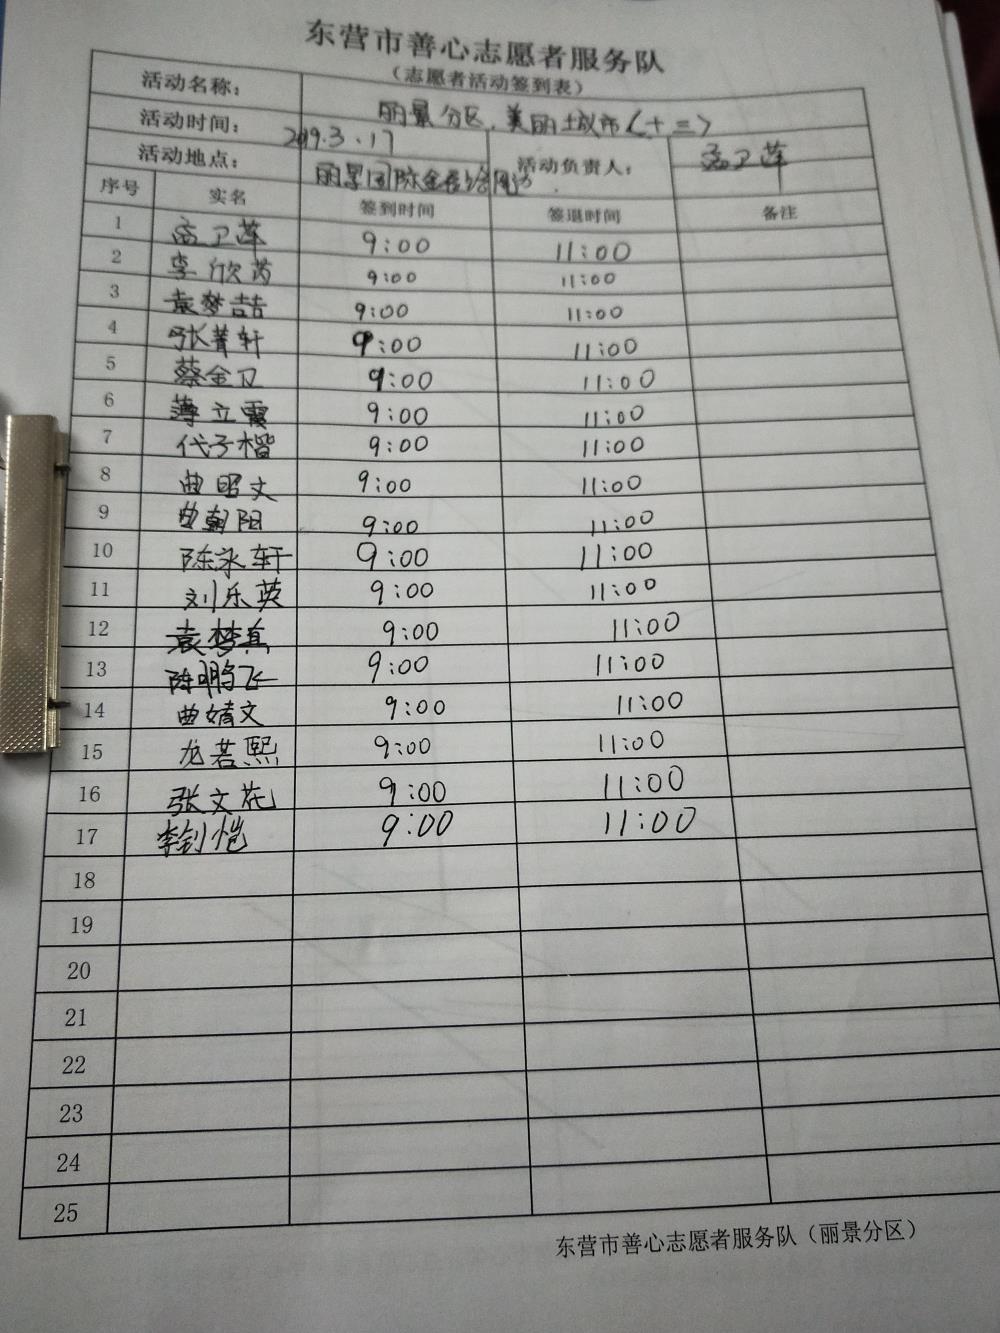 东营市善心志愿者服务队
（志愿者活动签到表）
活动名称： 丽景分区.美丽城市<十二>
活动时间： 2019.3.17 活动负责人： 孟卫莲
活动地点： 丽景国际
序号 实名 签到时间 签退时间 备注
1 孟卫莲 9:00 11:00
2 李欣芮 9:00 11:00
3 袁梦喆 9:00 11:00
4 张菁轩 9:00 11:00
5 蔡金卫 9:00 11:00
6 薄立霞 9:00 11:00
7 代子楷 9:00 11:00
8 曲昭文 9:00 11:00
9 曲朝阳 9:00 11:00
10 陈永轩 9:00 11:00
11 刘乐英 9:00 11:00
12 袁梦真 9:00 11:00
13 陈鹏飞 9:00 11:00
14 曲婧文 9:00 11:00
15 龙若熙 9:00 11:00
16 张文花 9:00 11:00
17 李钊恺 9:00 11:00
18
19
20
21
22
23
24
25
东营市善心志愿者服务队（丽景分区）